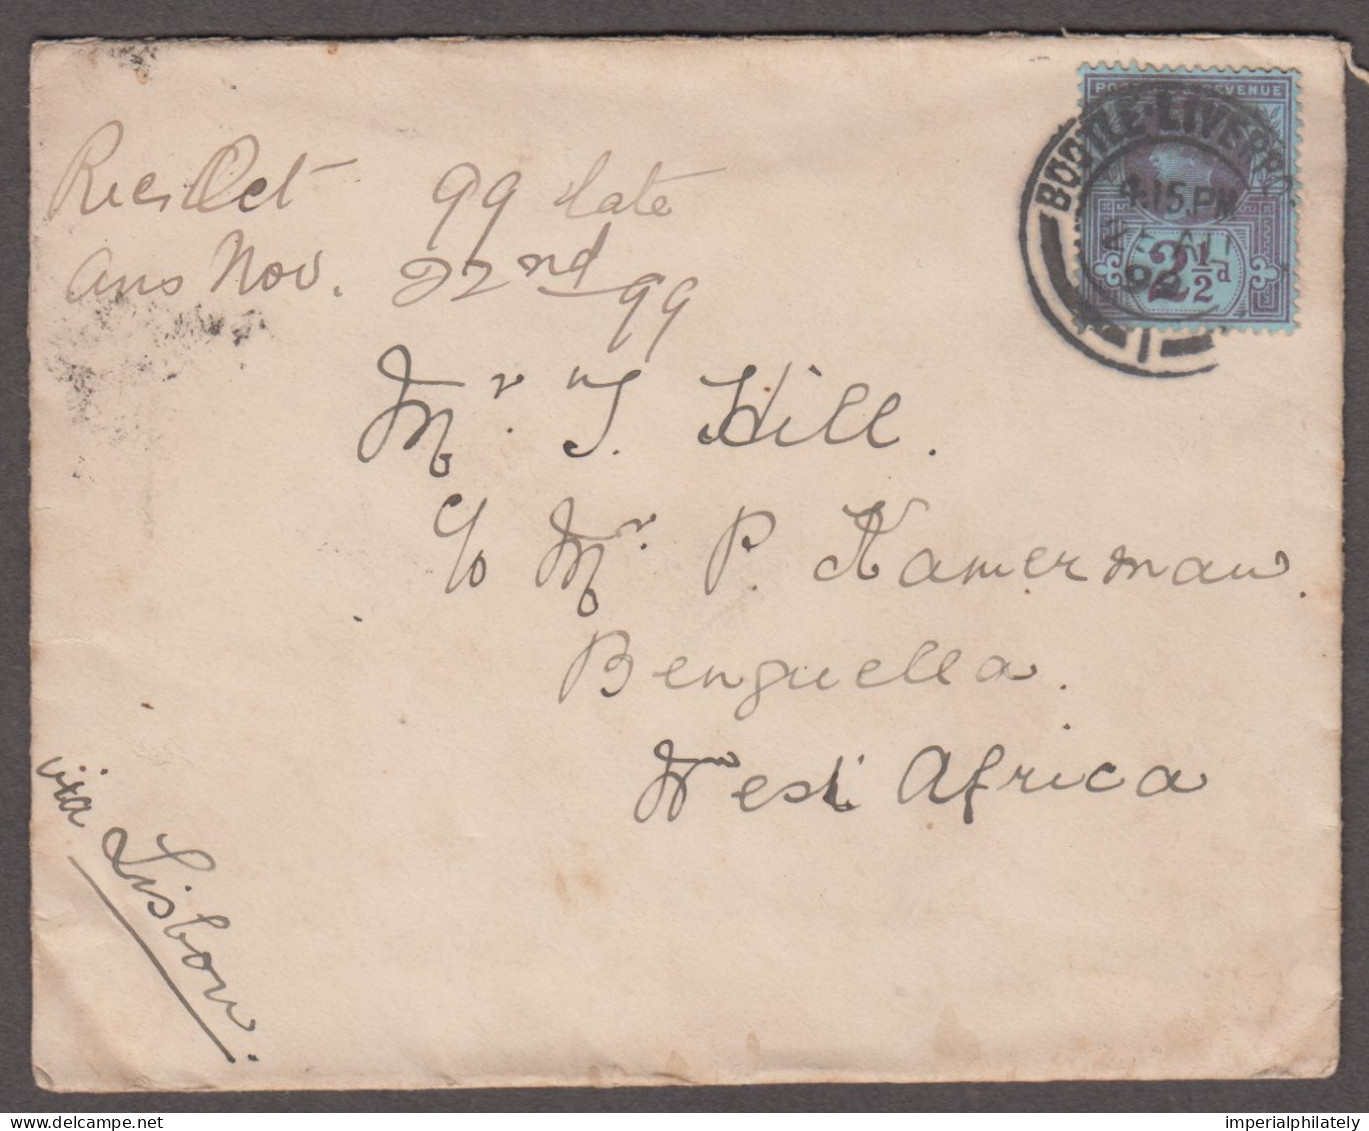 Rec. Oct 99 late
Ans Nov. 22nd 99
POSTAGE REVENUE
BOOTLE·LIVERPOOL
4.15.PM
2½d
1
Mr. T. Hill.
c/o Mr. P. Kamerman.
Benguella.
West Africa
via Lisbon.
www.delcampe.net
imperialphilately